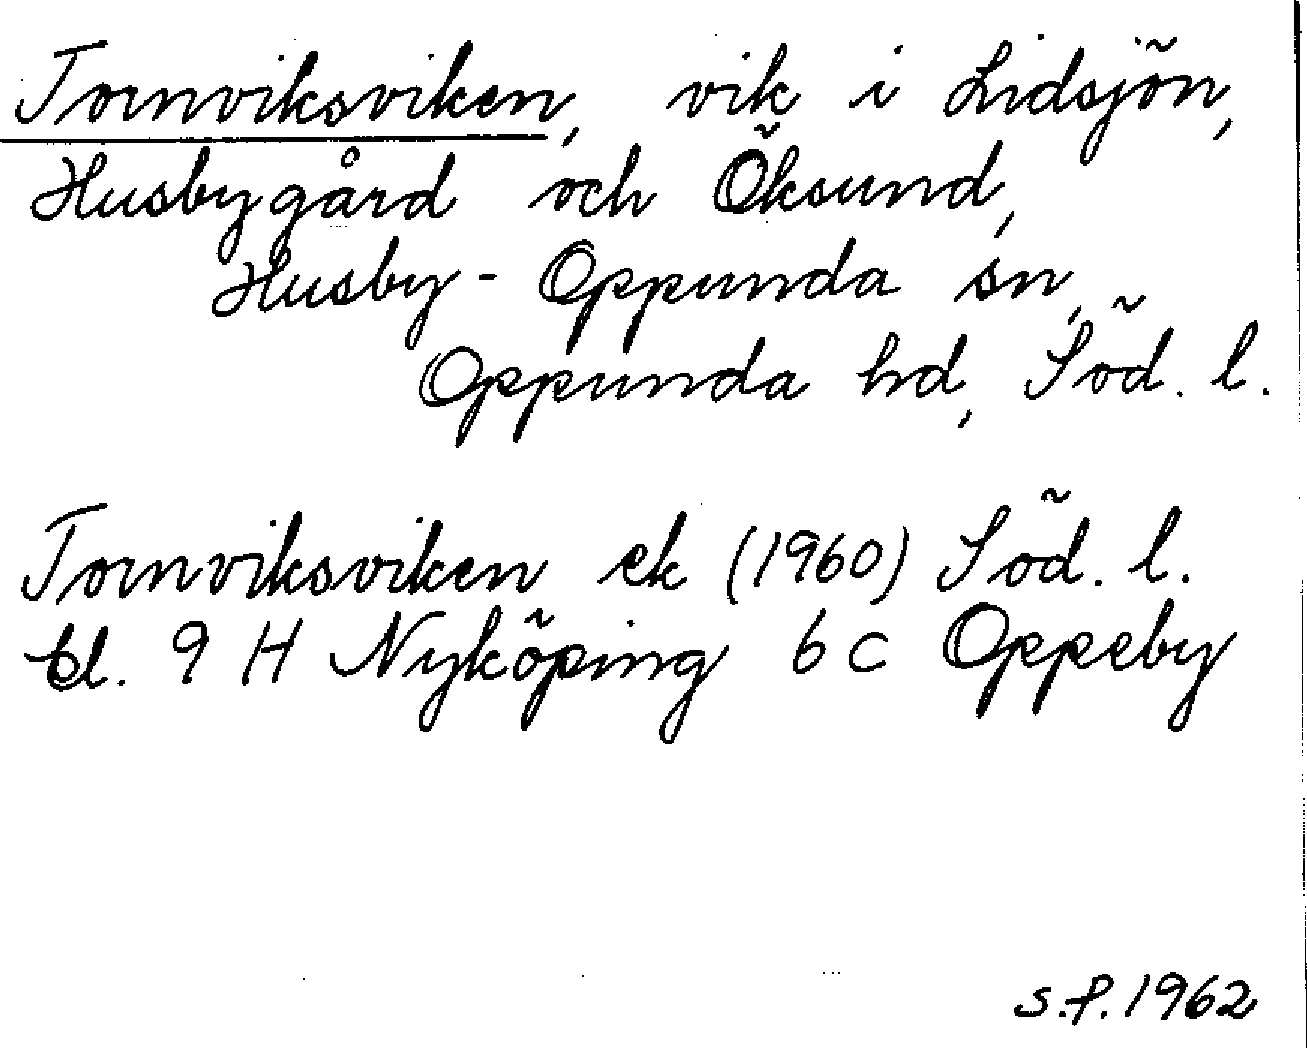 Tornviksviken, vik i Lidsjön,
Husbygård och Öksund,
Husby-Oppunda sn,
Oppunda hd, Söd. l.
Tornviksviken ek (1960) Söd. l.
bl. 9 H Nyköping 6 c Oppeby
S.P. 1962